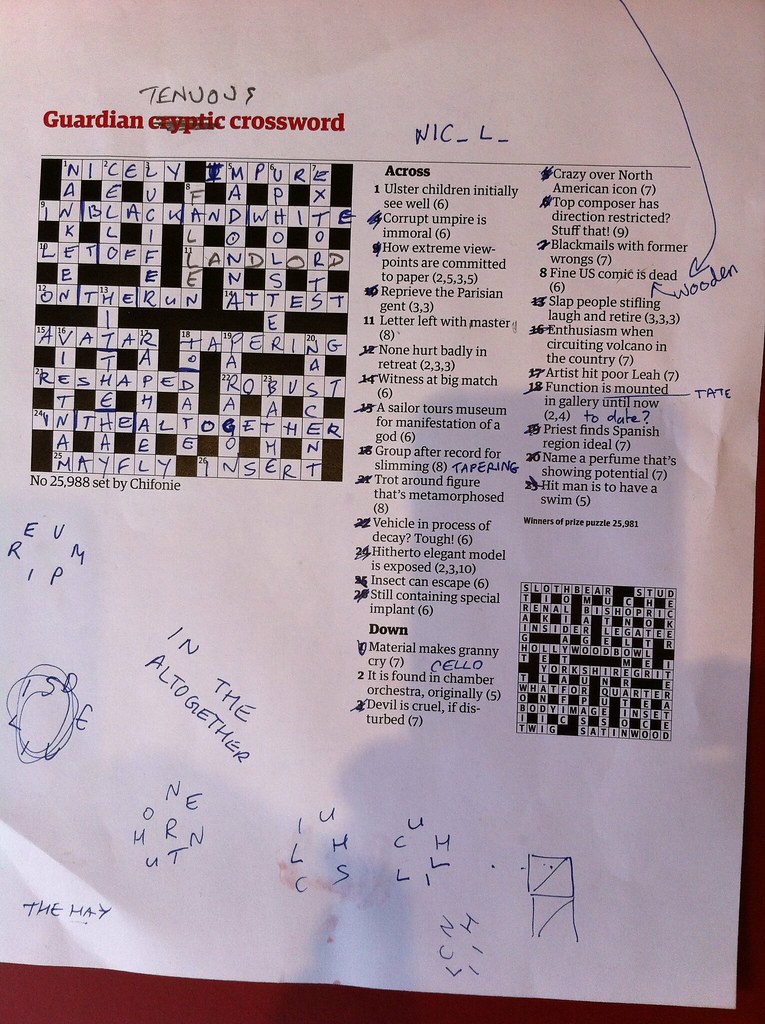 TENUOUS
Guardian cryptic crossword
NIC_ L_
NICELY IMPURE
IN BLACK AND WHITE
LET OFF LANDLORD
ON THE RUN ATTEST
AVATAR TAPERING
RESHAPED ROBUST
IN THE ALTOGETHER
MAYFLY INSERT
No 25,988 set by Chifonie
Across
1 Ulster children initially
see well (6)
4 Corrupt umpire is
immoral (6)
9 How extreme view-
points are committed
to paper (2,5,3,5)
10 Reprieve the Parisian
gent (3,3)
11 Letter left with master
(8)
12 None hurt badly in
retreat (2,3,3)
14 Witness at big match
(6)
15 A sailor tours museum
for manifestation of a
god (6)
18 Group after record for
slimming (8) TAPERING
21 Trot around figure
that's metamorphosed
(8)
22 Vehicle in process of
decay? Tough! (6)
24 Hitherto elegant model
is exposed (2,3,10)
25 Insect can escape (6)
26 Still containing special
implant (6)
Down
1 Material makes granny
cry (7)
CELLO
2 It is found in chamber
orchestra, originally (5)
3 Devil is cruel, if dis-
turbed (7)
5 Crazy over North
American icon (7)
6 Top composer has
direction restricted?
Stuff that! (9)
7 Blackmails with former
wrongs (7)
8 Fine US comic is dead
(6)
wooden
13 Slap people stifling
laugh and retire (3,3,3)
16 Enthusiasm when
circuiting volcano in
the country (7)
17 Artist hit poor Leah (7)
18 Function is mounted
in gallery until now
(2,4) to date?
TATE
19 Priest finds Spanish
region ideal (7)
20 Name a perfume that's
showing potential (7)
23 Hit man is to have a
swim (5)
Winners of prize puzzle 25,981
SLOTHBEAR STUD
RENAL BISHOPRIC
INSIDER LEGATEE
HOLLYWOODBOWL
YORKSHIREGRIT
WHATFOR QUARTER
BODYIMAGE INSET
TWIG SATINWOOD
E U
R M
I P
IN THE
ALTOGETHER
N E
O
H R N
U T
I U
L H
C S
U
C H
L L I
THE HAY